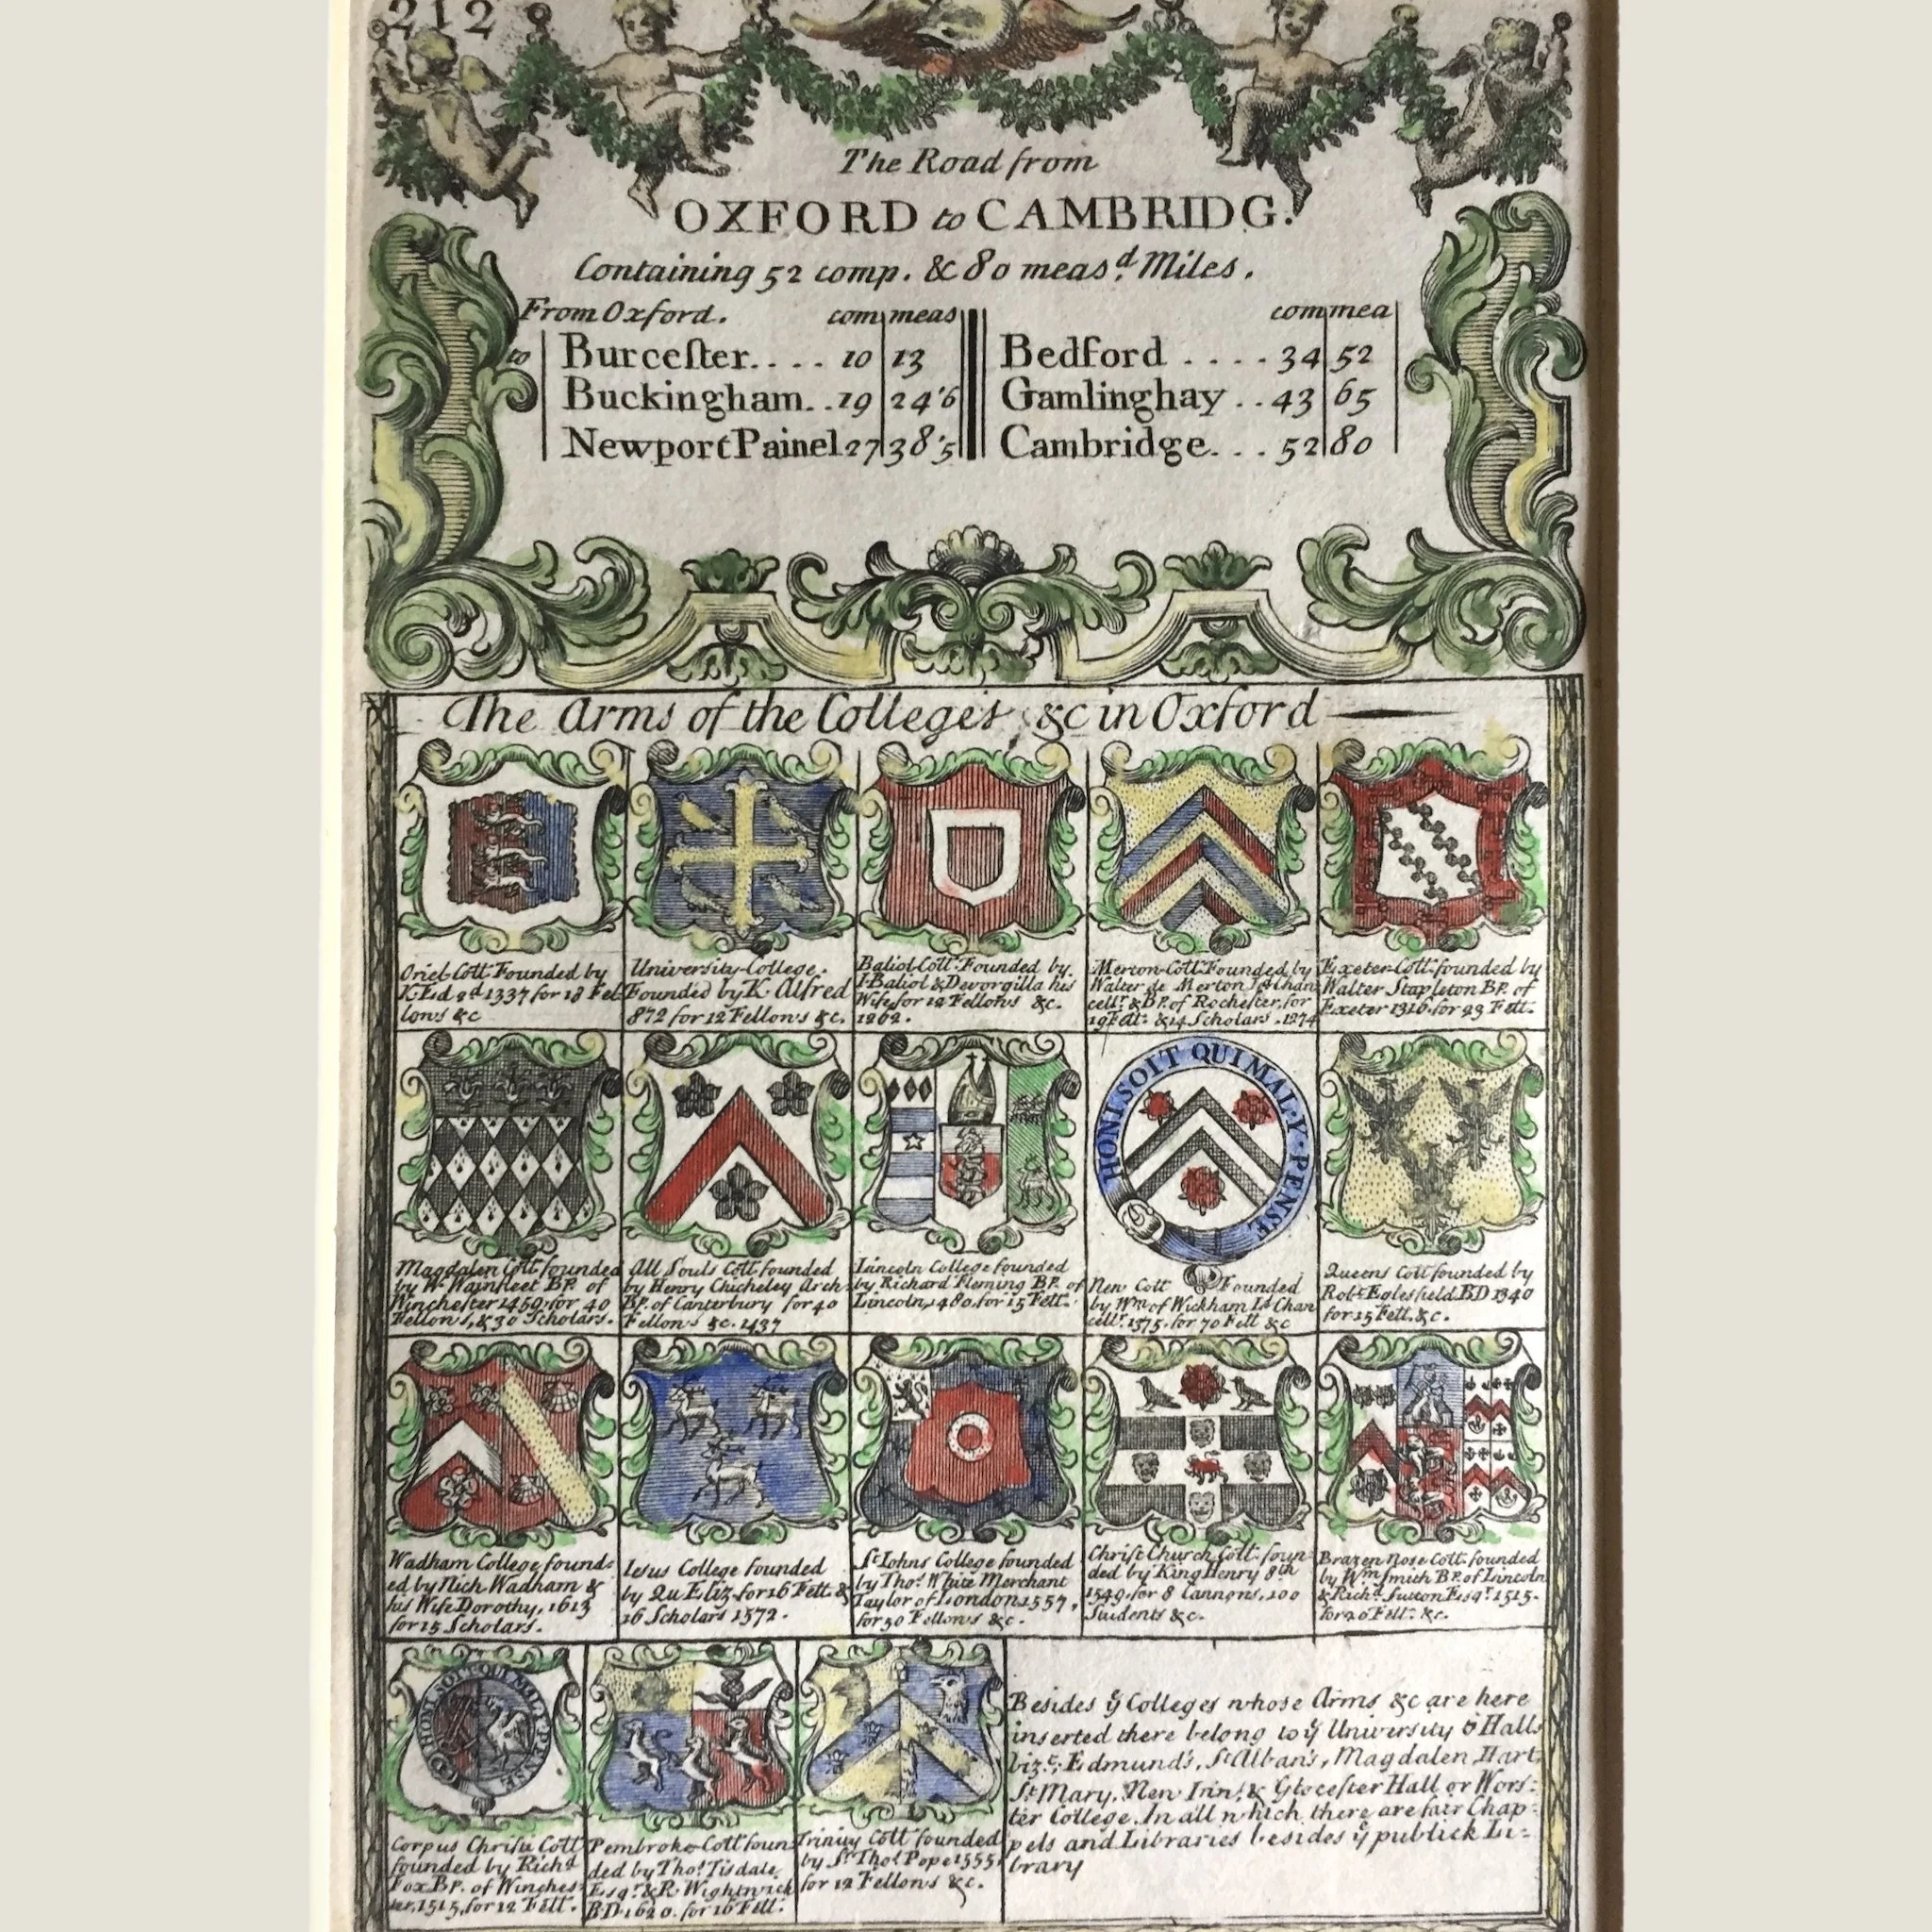 212
The Road from
OXFORD to CAMBRIDG.
Containing 52 comp. & 80 meas.d Miles.
From Oxford. com meas
to Burceſter.... 10 13
Buckingham.. 19 24'6
Newport Painel 27 38'5
com mea
Bedford .... 34 52
Gamlinghay .. 43 65
Cambridge... 52 80
The Arms of the Colleges &c in Oxford
Oriel Coll Founded by
K. Ed 2d 1337 for 18 Fel
lows &c
University College.
Founded by K. Alfred
872 for 12 Fellows &c.
Baliol Coll Founded by
I Baliol & Devorgilla his
Wife for 12 Fellows &c.
1262.
Merton Coll Founded by
Walter de Merton Ld Chan
cellr. & BP. of Rocheſter, for
19 Fell: & 14 Scholars . 1274
Exeter Coll founded by
Walter Stapleton BP. of
Exeter 1316. for 23 Fell.
Magdalen Coll founded
by W. Wainfleet BP. of
Wincheſter 1459. for 40
Fellows, & 30 Scholars.
All Souls Coll founded
by Henry Chicheley Arch
BP. of Canterbury for 40
Fellows &c. 1437
Lincoln College founded
by Richard Fleming BP. of
Lincoln, 1480. for 15 Fell.
HONI SOIT QUI MAL Y PENSE
New Coll Founded
by Wm of Wickham Ld Chan
cellr. 1375. for 70 Fell &c
Queens Coll founded by
Robt. Eglesfield. BD 1340
for 15 Fell. &c.
Wadham College found-
ed by Nich Wadham &
his Wife Dorothy, 1613
for 15 Scholars.
Iesus College founded
by Qu Eliz for 16 Fell. &
16 Scholars 1572.
St. Iohns College founded
by Thos. White Merchant
Taylor of London 1557,
for 50 Fellows &c.
Chriſt Church Coll. foun-
ded by King Henry 8th
1549. for 8 Cannons, 100
Students &c.
Brazen Nose Coll. founded
by Wm Smith BP. of Lincoln
& Richd. Sutton Esqr. 1515.
for 20 Fell. &c.
HONI SOIT QUI MAL Y PENSE
Corpus Chriſti Coll
founded by Richd
Fox BP. of Winches-
ter, 1515, for 12 Fell.
Pembroke Coll foun
ded by Thos. Tisdale
Esqr. & R. Wightwick
BD. 1620. for 16 Fell.
Trinity Coll founded
by Sr. Thos. Pope 1555
for 12 Fellows &c.
Besides ye Colleges whose Arms &c are here
inserted there belong to ye University 6 Halls
viz.t Edmund's, St Alban's, Magdalen, Hart,
St Mary, New Inn, & Gloceſter Hall or Wors-
ter College. In all which there are fair Chap-
pels and Libraries besides ye publick Li-
brary